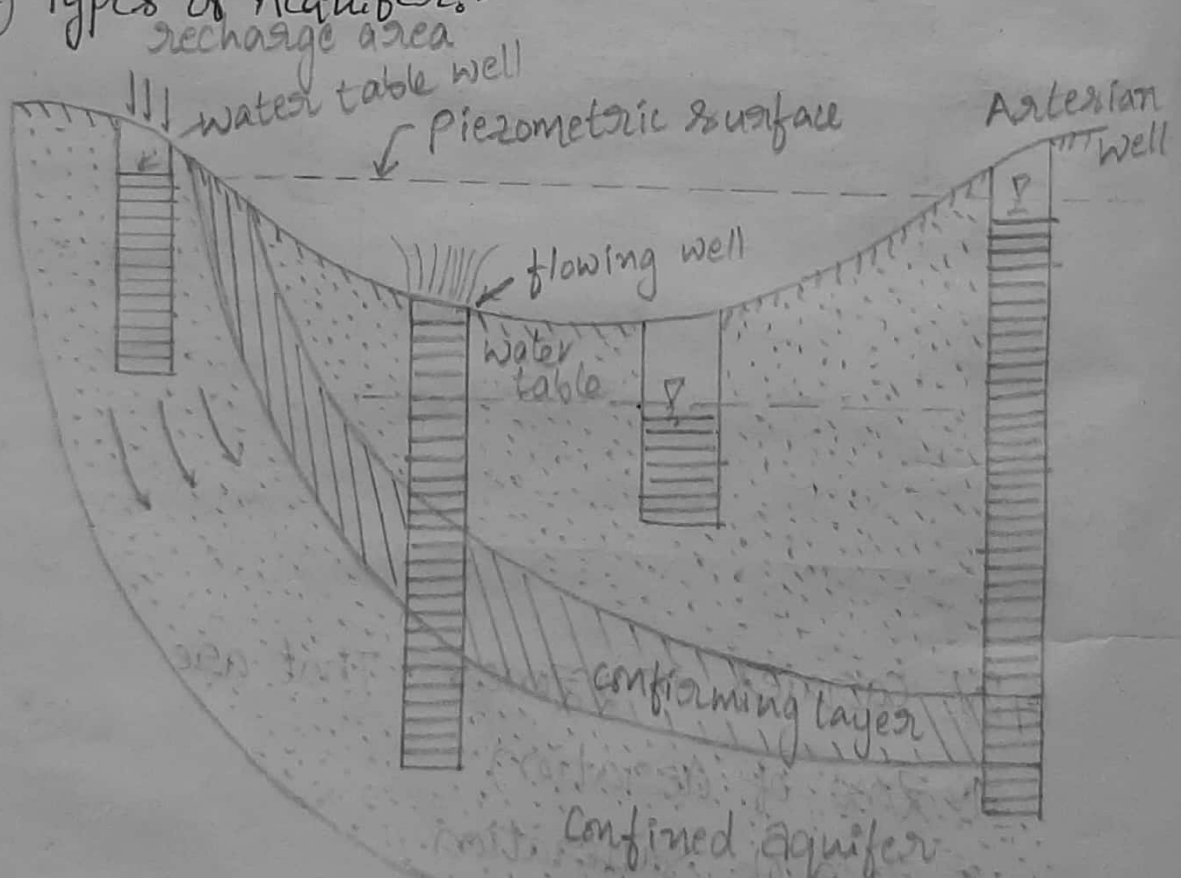 Types of Acquifers
recharge area
water table well
Piezometric surface
Arterian
well
flowing well
water
table
confirming layer
Confined aquifer